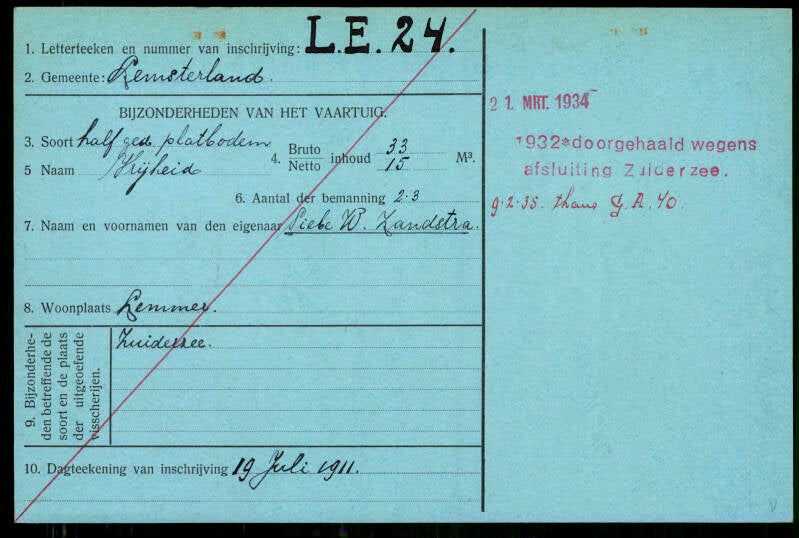 1. Letterteeken en nummer van inschrijving: L.E. 24.
2. Gemeente: Lemsterland.
BIJZONDERHEDEN VAN HET VAARTUIG.
3. Soort half ged. platbodem
4. Bruto Netto inhoud 33 15 M³.
5 Naam Vrijheid
6. Aantal der bemanning 2-3
7. Naam en voornamen van den eigenaar Siebe W. Zandstra.
8. Woonplaats Lemmer.
9. Bijzonderhe-
den betreffende de
soort en de plaats
der uitgeoefende
visscherijen.
Zuiderzee.
10. Dagteekening van inschrijving 19 Juli 1911.
21. MRT. 1934
1932 doorgehaald wegens
afsluiting Zuiderzee.
9-2-35. thans G.A. 40.